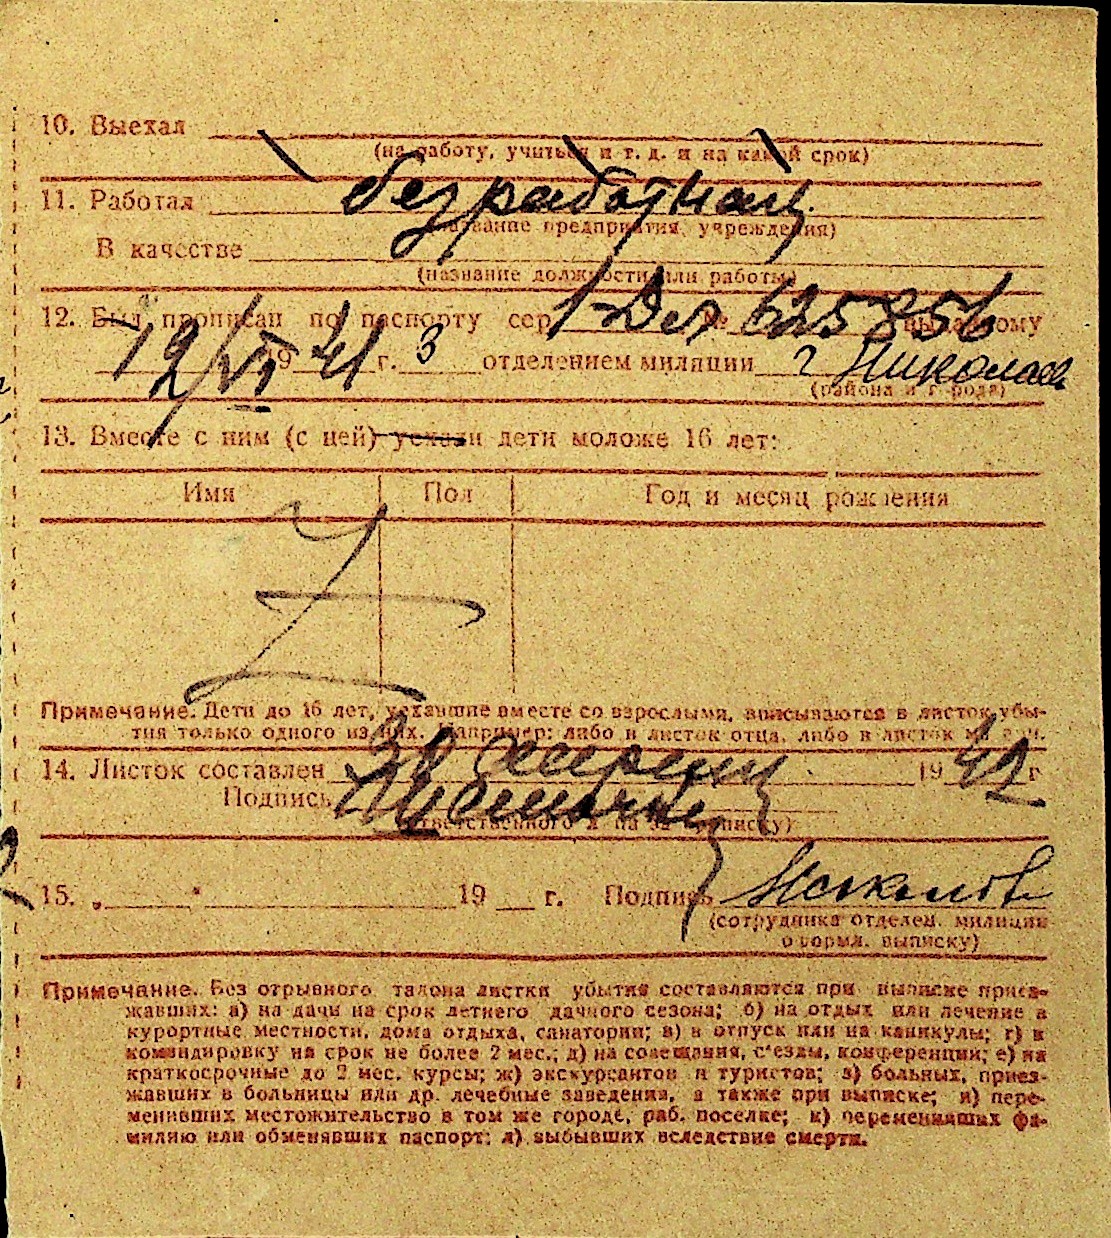 10. Выехал
(на работу, учиться и т. д. и на какой срок)
11. Работал безработная
(название предприятия, учреждения)
В качестве
(название должности или работы)
12. Был прописан по паспорту сер № 625856 выданному
19/VI 1941 г. 3 отделением милиции г Николаев
(района и города)
13. Вместе с ним (с ней) уехали дети моложе 16 лет:
Имя Пол Год и месяц рождения
Z
Примечание. Дети до 16 лет, уехавшие вместе со взрослыми, вписываются в листок убы-
тия только одного из них. Например: либо в листок отца, либо в листок
14. Листок составлен 30 1942 г
Подпись
(ответственного за выписку)
15. „ " 19 г. Подпись
(сотрудника отделен. милиции
оформл. выписку)
Примечание. Без отрывного талона листки убытия составляются при выписке приез-
жавших: а) на дачи на срок летнего дачного сезона; б) на отдых или лечение в
курортные местности, дома отдыха, санатории; в) в отпуск или на каникулы; г) в
командировку на срок не более 2 мес.; д) на совещания, с'езды, конференции; е) на
краткосрочные до 2 мес. курсы; ж) экскурсантов и туристов; з) больных, приез-
жавших в больницы или др. лечебные заведения, а также при выписке; и) пере-
менивших местожительство в том же городе, раб. поселке; к) переменивших фа-
милию или обменявших паспорт; л) выбывших вследствие смерти.